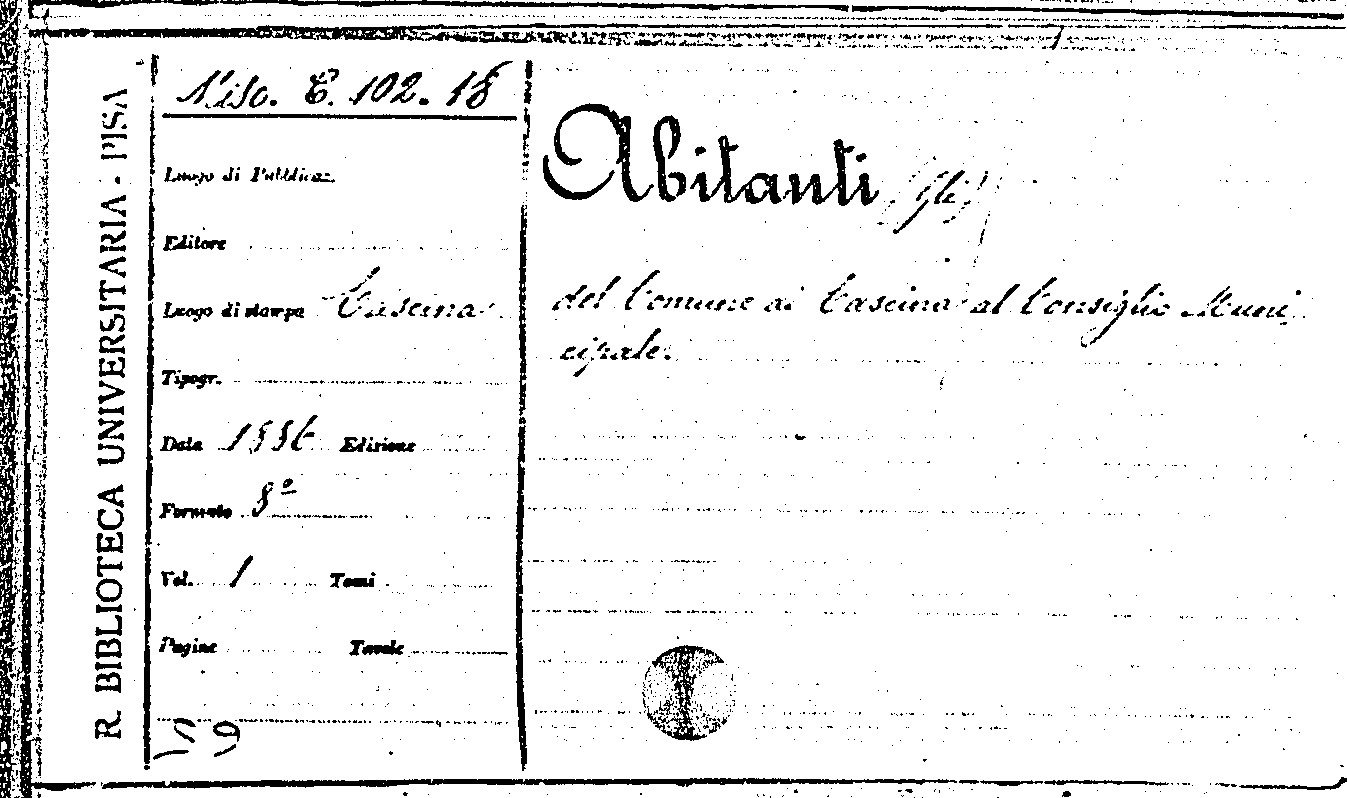 R. BIBLIOTECA UNIVERSITARIA - PISA
Misc. C. 102. 18
Luogo di Pubblicaz.
Editore
Luogo di stampa Cascina
Tipogr.
Data 1886 Edizione
Formato 8º
Vol. 1 Tomi
Pagine Tavole
Abitanti (gli)
del Comune di Cascina al Consiglio Muni
cipale.